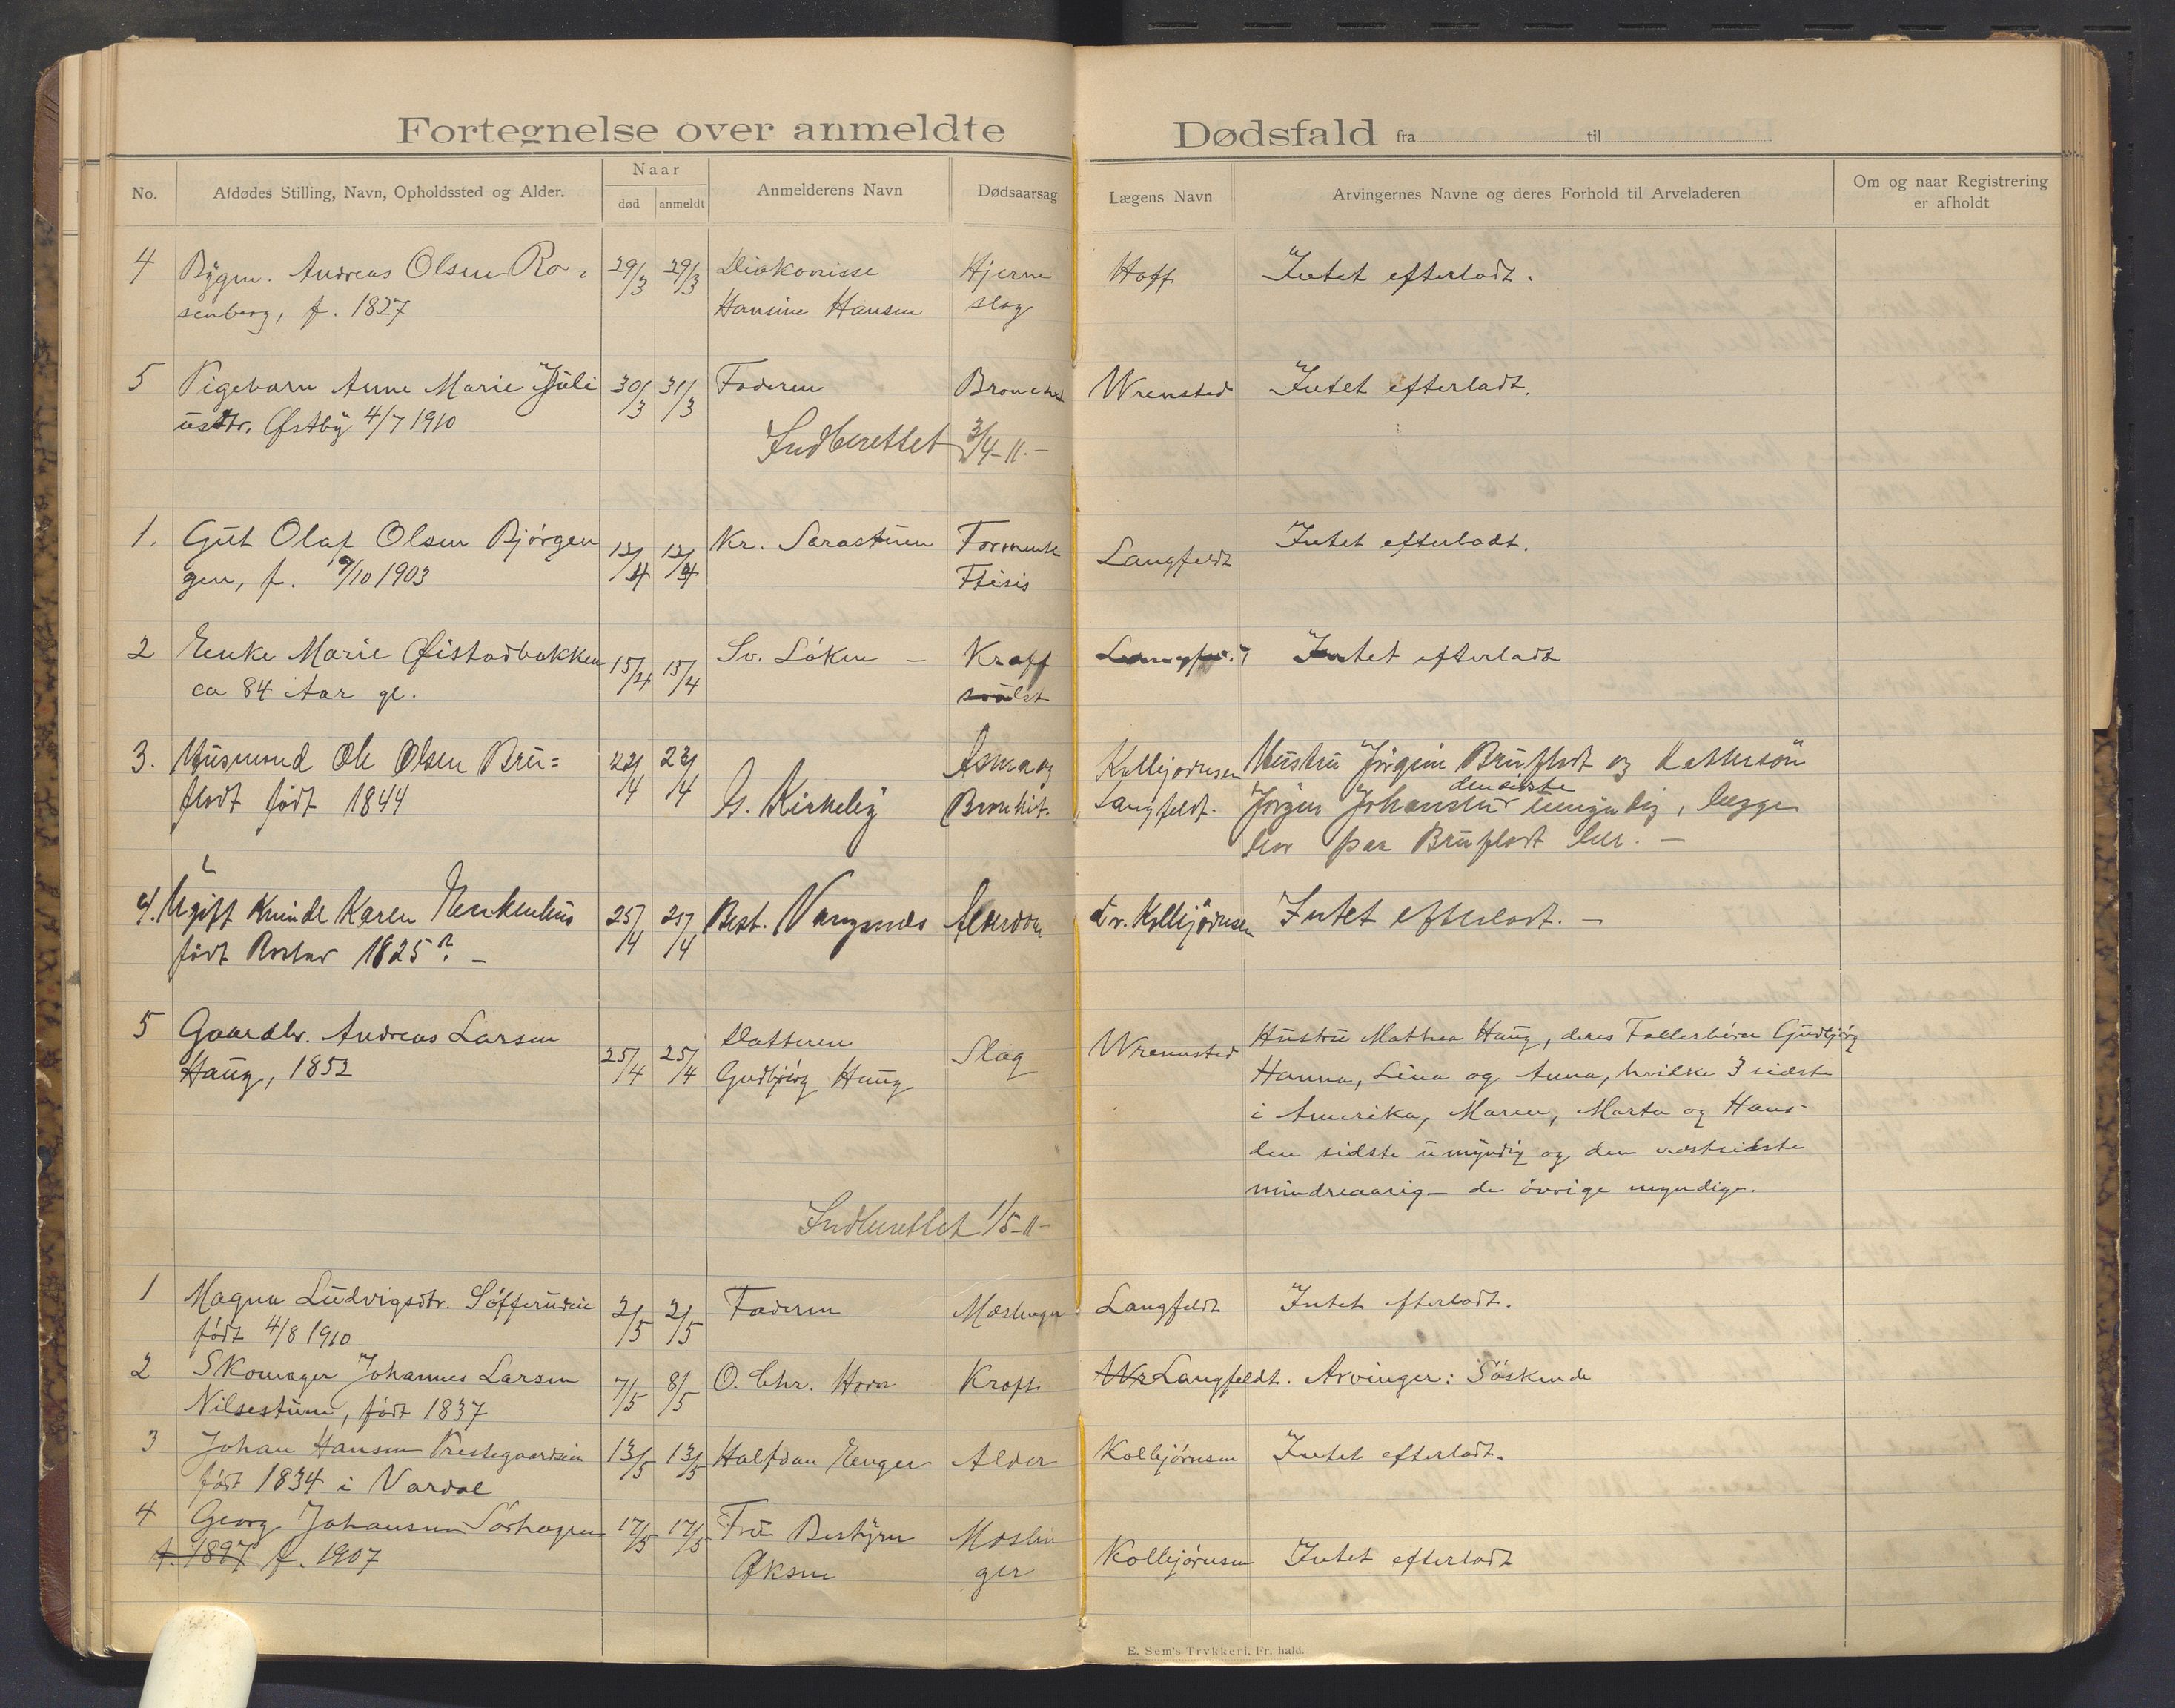 Fortegnelse over anmeldte Dødsfald fra til
No.
Afdødes Stilling, Navn, Opholdssted og Alder.
Naar
død
anmeldt
Anmelderens Navn
Dødsaarsag
Lægens Navn
Arvingernes Navne og deres Forhold til Arveladeren
Om og naar Registrering
er afholdt
4 Bygm. Andreas Olsen Ro- 29/3 29/3 Diakonisse Hjerne Hoff Intet efterladt.
senberg, f. 1827 Hansine Hansen slag
5 Pigebarn Anne Marie Juli 30/3 31/3 Faderen Wrensted Intet efterladt.
usdtr. Østby 4/7 1910
Indberettet 3/4-11.-
1. Gut Olaf Olsen Bjørgen 12/4 12/4 Kr. Sarastuen Langfeldt Intet efterladt.
gen, f. 9/10 1903 Ftisis
2 Enke Marie Øistadbakken 15/4 15/4 Sv. Løken - Kræft Intet efterladt
ca 84 Aar gl. svulst
3. Husmand Ole Olsen Bru= 22/4 23/4 Asma og Kolbjørnsen Hustru Jørgine Bruflodt og Dattersøn
flodt født 1844 G. Kirkeby Bronkit. Langfeldt. Jørgen Johansen den sidste umyndig, begge
bor paa Bruflodt her. -
4. Ugift Kvinde Karen Enkenhus 25/4 25/4 Best. Vangsnes Alderdom dr. Kolbjørnsen Intet efterladt. -
født Roster 1825? -
5 Gaardbr. Andreas Larsen 25/4 25/4 Datteren Slag Wrennsted Hustru Mathea Haug, deres Fællesbørn Gudbjørg
Haug, 1852 Gudbjørg Haug Hanna, Lina og Anna, hvilke 3 sidste
i Amerika, Maren, Marta og Hans-
den sidste umyndig og den næstsidste
mindreaarig - de øvrige myndige.
Indberettet 1/5-11-
1 Magna Ludvigsdtr. Sofferudeie 2/5 2/5 Faderen Mæslinger Langfeldt Intet efterladt.
født 4/8 1910
2 Skomager Johannes Larsen 7/5 8/5 O. Chr. Horn Kræft Wr Langfeldt. Arvinger: Søskende
Nilsestuen, født 1837
3 Johan Hansen Prestegaardseie 13/5 13/5 Halfdan Enger Alder Kolbjørnsen Intet efterladt.
født 1834 i Vardal
4 Georg Johansen Sørhagen 17/5 17/5 Fru Bestyrer Mæslin Kolbjørnsen Intet efterladt
f. 1897 f. 1907 Øksne ger
E. Sem's Trykkeri, Fr. hald.